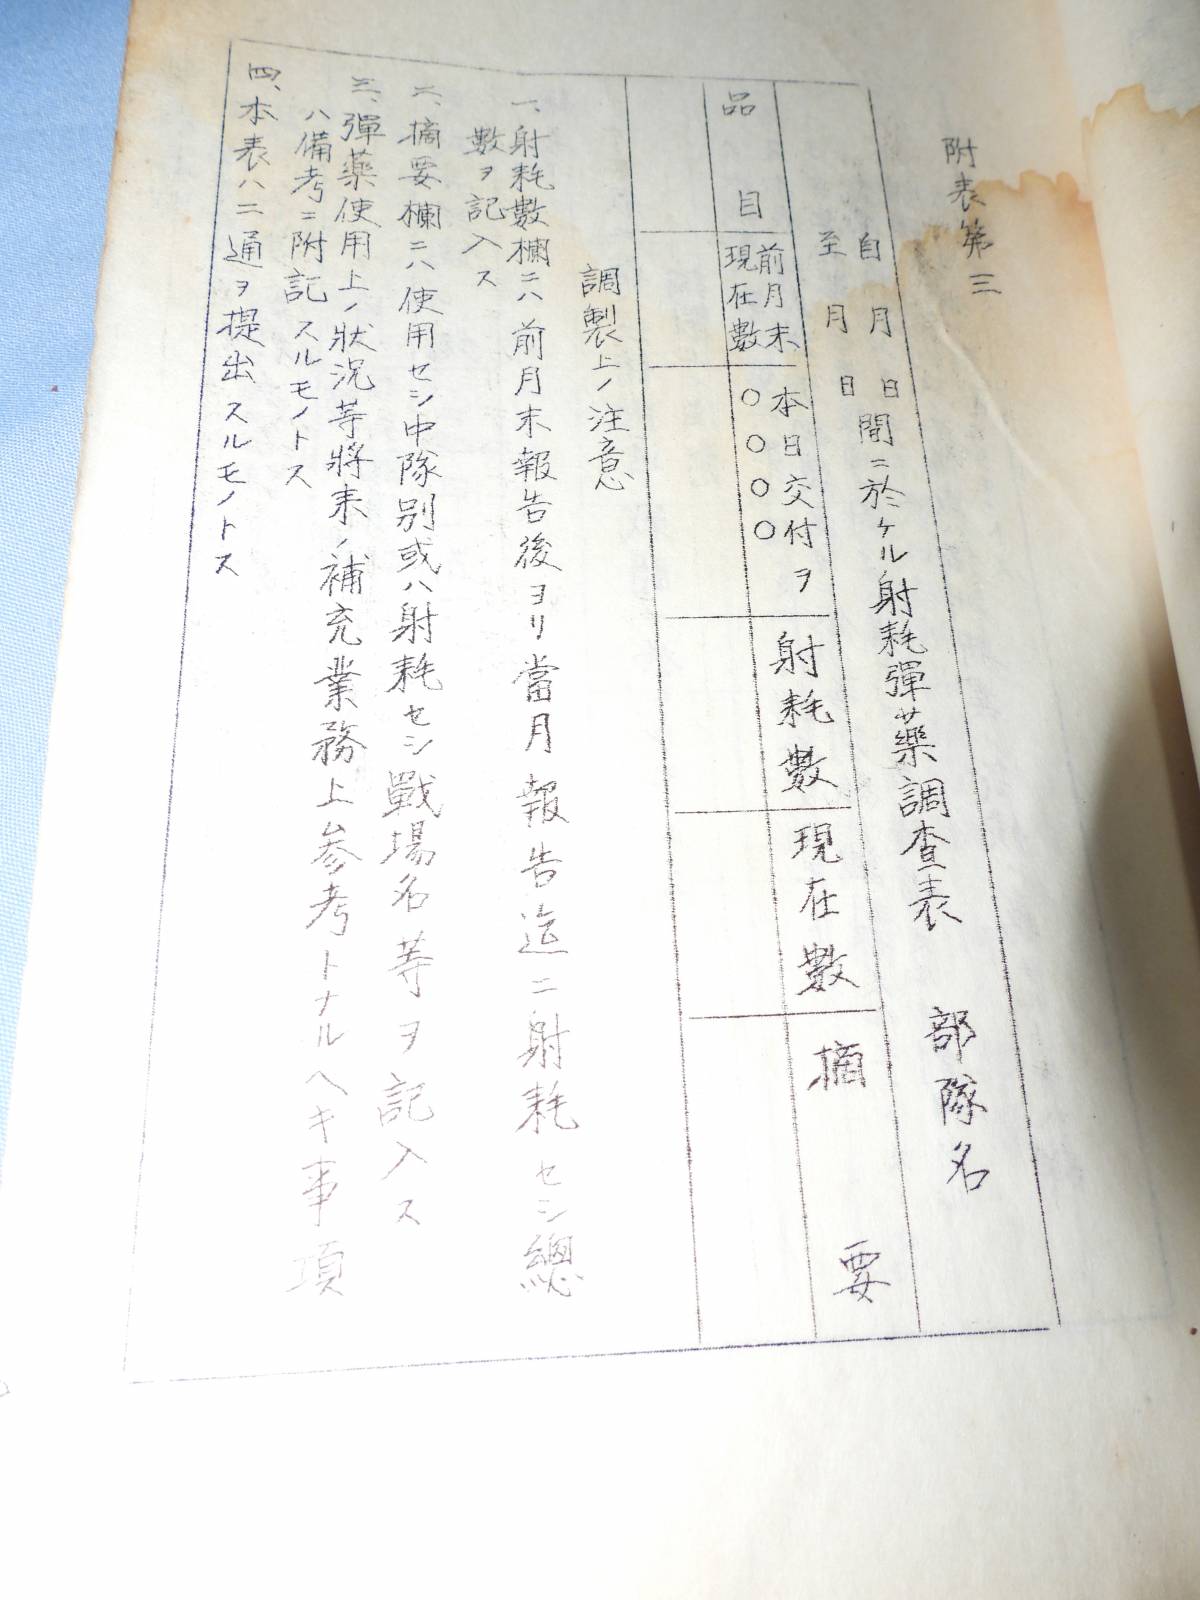 附表第三
自 月 日
至 月 日
間ニ於ケル射耗彈藥調査表 部隊名
品目
前月末
現在數
本日交付ヲ
〇〇〇〇
射耗數
現在數
摘要
調製上ノ注意
一、射耗數欄ニハ前月末報告後ヨリ當月報告迄ニ射耗セシ總
數ヲ記入ス
二、摘要欄ニハ使用セシ中隊別或ハ射耗セシ戰場名等ヲ記入ス
三、彈藥使用上ノ狀況等將来ノ補充業務上参考トナルヘキ事項
ハ備考ニ附記スルモノトス
四、本表ハ二通ヲ提出スルモノトス